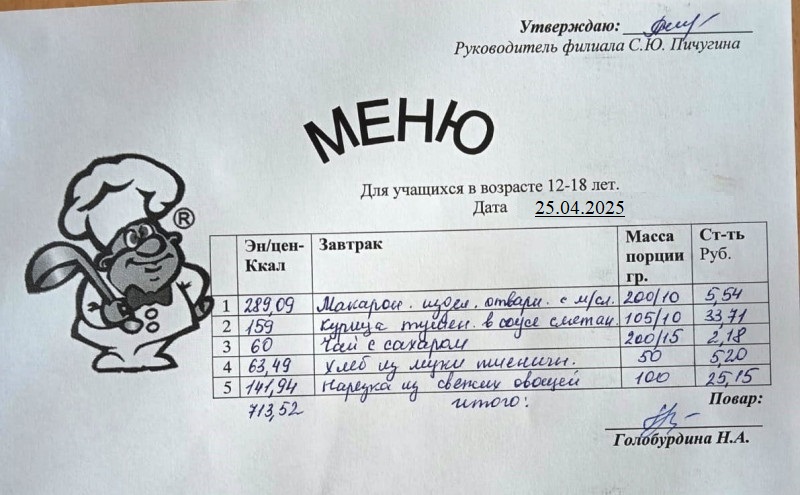 Утверждаю:
Руководитель филиала С.Ю. Пичугина
МЕНЮ
Для учащихся в возрасте 12-18 лет.
Дата 25.04.2025
®
Эн/цен-Ккал Завтрак Масса порции гр. Ст-ть Руб.
1 289,09 Макарон. издел. отварн. с м/сл. 200/10 5,54
2 159 Курица тушен. в соусе сметан. 105/10 33,71
3 60 Чай с сахаром 200/15 2,18
4 63,49 Хлеб из муки пшеничн. 50 5,20
5 141,94 Нарезка из свежих овощей 100 25,15
713,52 итого:
Повар:
Голобурдина Н.А.